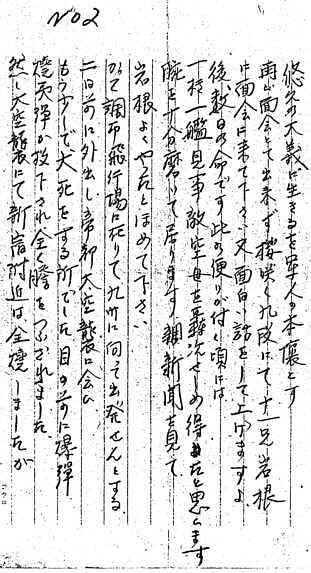 No 2
悠久の大義に生きるを軍人の本懐とす
再び面会も出来ず桜咲く九段にて十一兄岩根
に面会に来て下さい又面白い話をして上げますよ
後数日の命です此の便りが付く頃には
一機一艦見事敵空母を轟沈せしめ得たと思います
腕を十分磨いて居ります 調新聞を見て
岩根よくやったとほめて下さい
かって調布飛行場に在りて九州に向って出発せんとする
二日前に外出し帝都大空襲に会い
もう少しで犬死をする所でした目の前に爆弾
焼夷弾が投下され全く膽をつぶされました
然し大空襲にて新宿附近は全焼しましたが